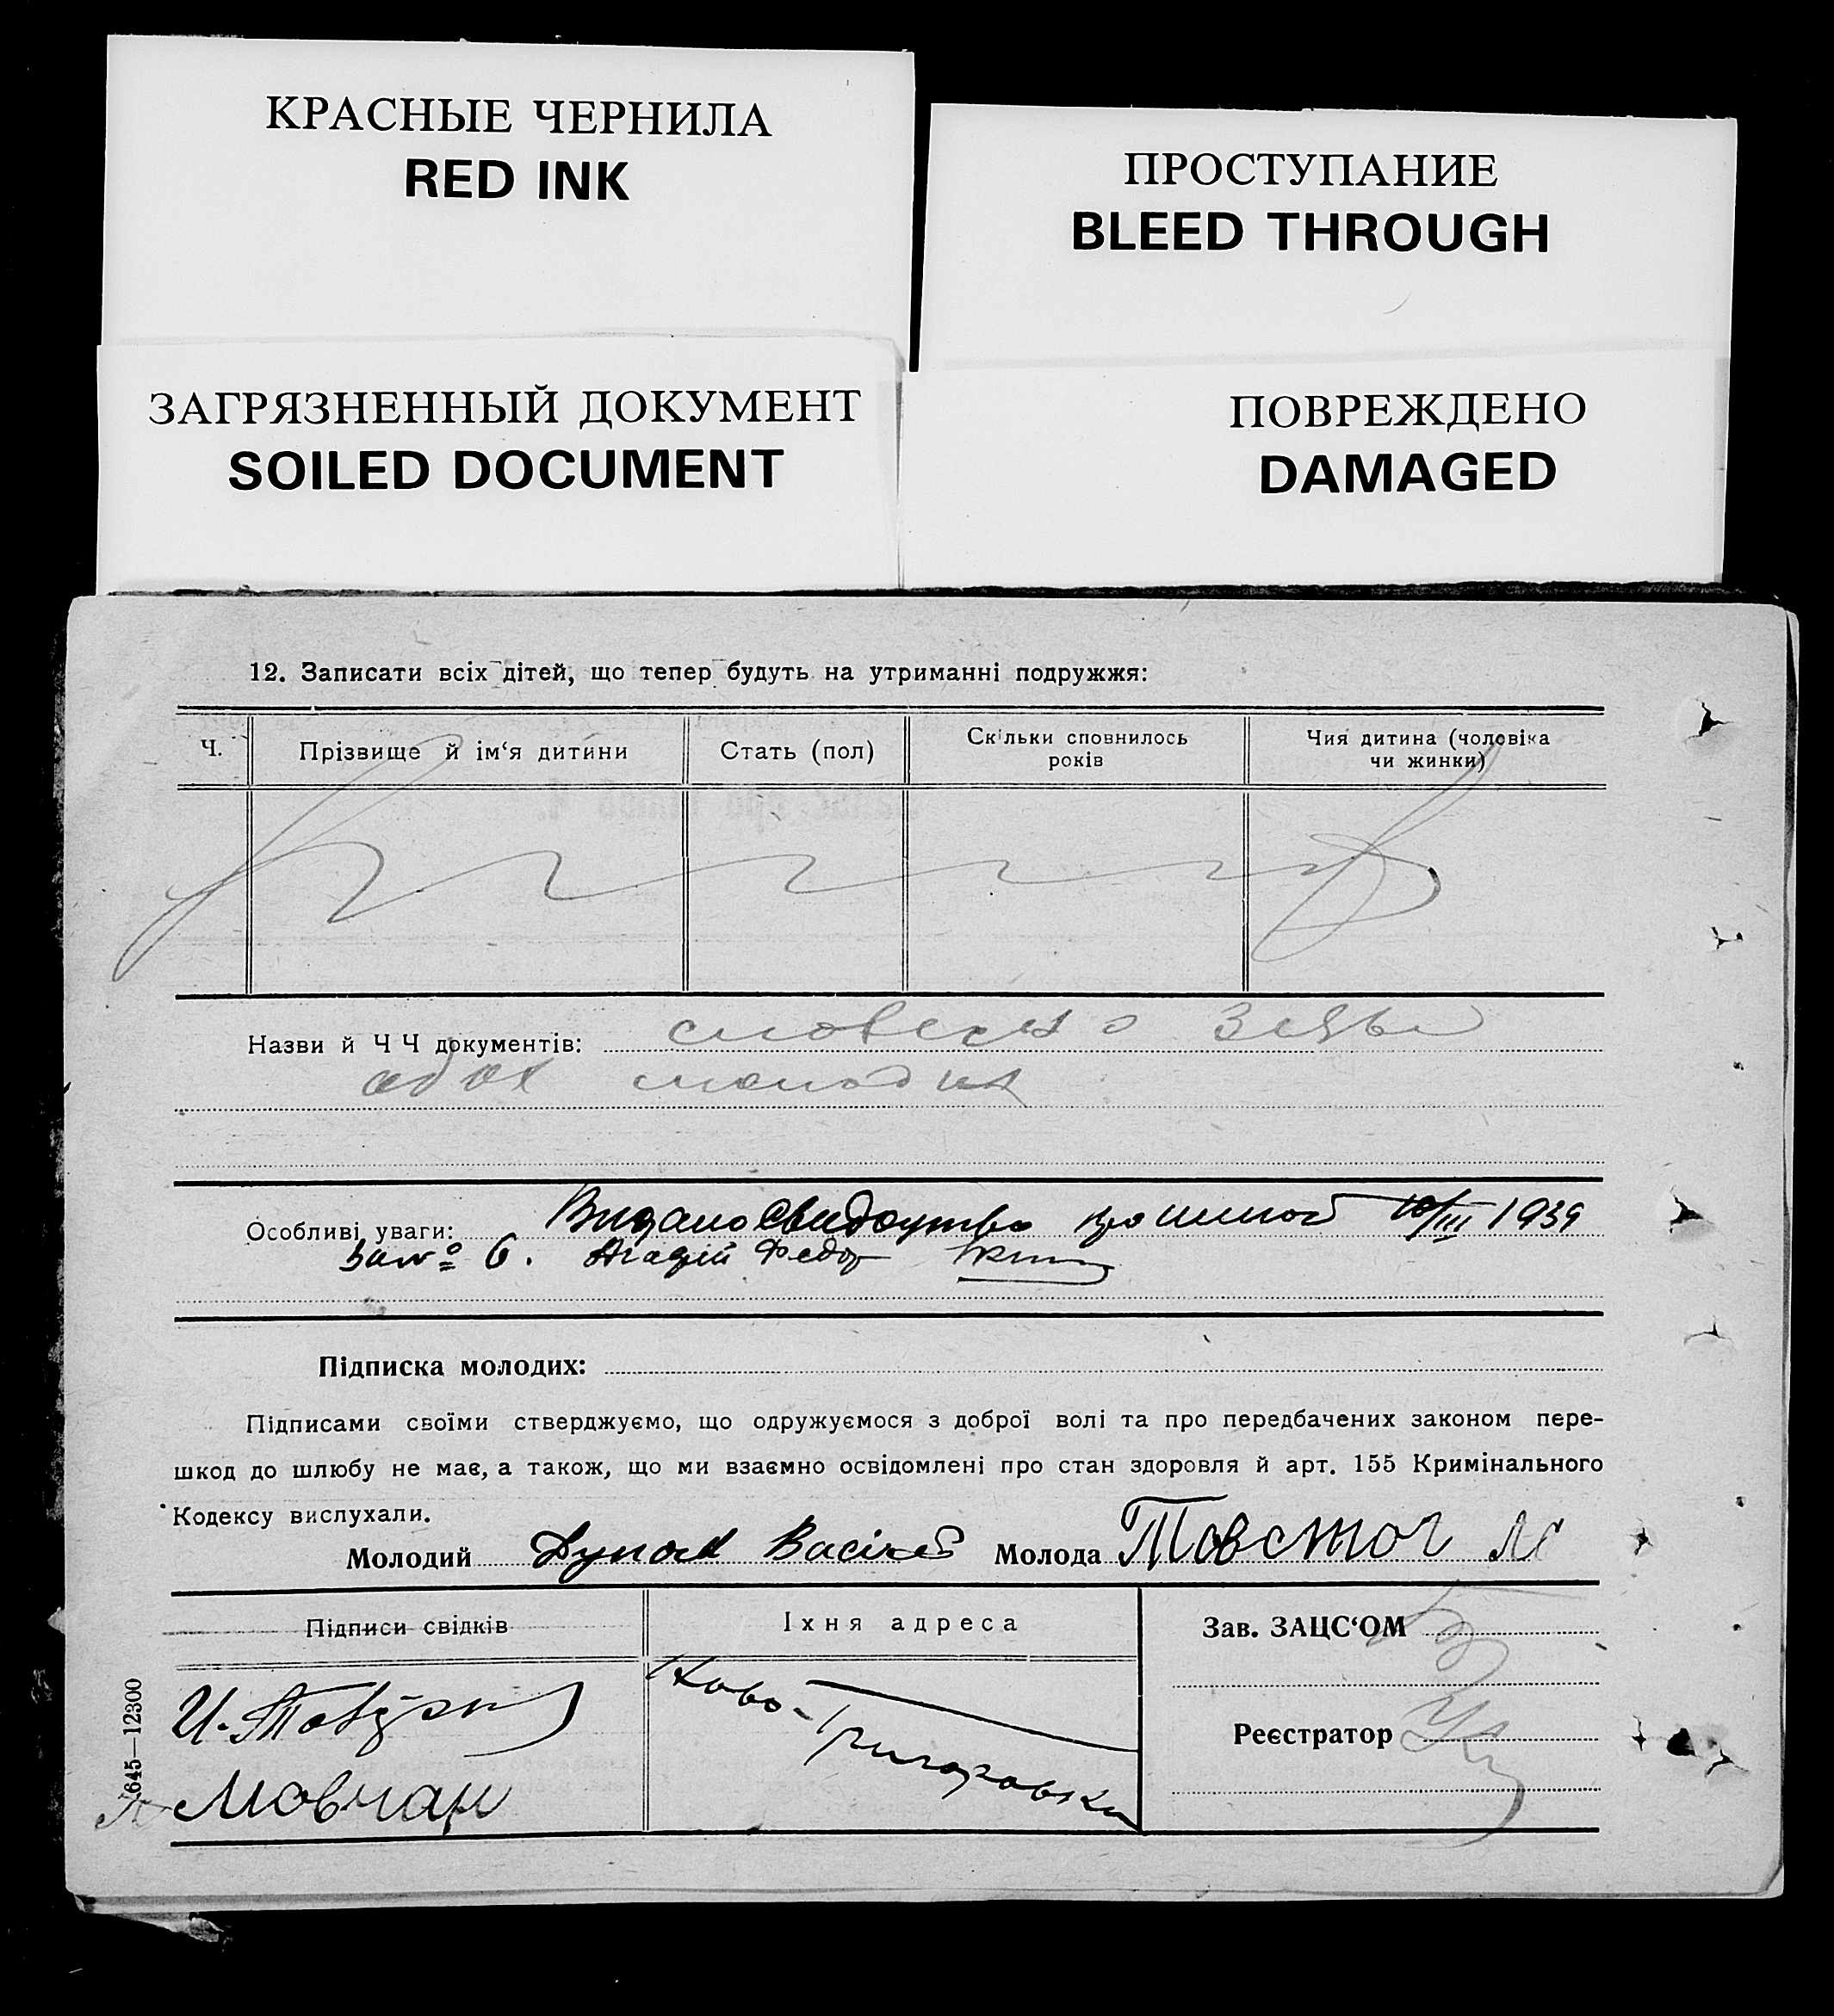 КРАСНЫЕ ЧЕРНИЛА
RED INK
ПРОСТУПАНИЕ
BLEED THROUGH
ЗАГРЯЗНЕННЫЙ ДОКУМЕНТ
SOILED DOCUMENT
ПОВРЕЖДЕНО
DAMAGED
12. Записати всіх дітей, що тепер будуть на утриманні подружжя:
Ч.
Прізвище й ім‘я дитини
Стать (пол)
Скільки сповнилось
років
Чия дитина (чоловіка
чи жинки)
Назви й Ч Ч документів:
обох молодих
Особливі уваги: Видано свидоцтво про шлюб 10/III 1939
за № 6.
Підписка молодих:
Підписами своїми стверджуємо, що одружуємося з доброї волі та про передбачених законом пере-
шкод до шлюбу не має, а також, що ми взаємно освідомлені про стан здоровля й арт. 155 Кримінального
Кодексу вислухали.
Молодий Васілий Молода Товстог М
Підписи свідків
Їхня адреса
Зав. ЗАЦС‘ОМ
Ново-Григоровка
Реєстратор
Мовчан
645—12300